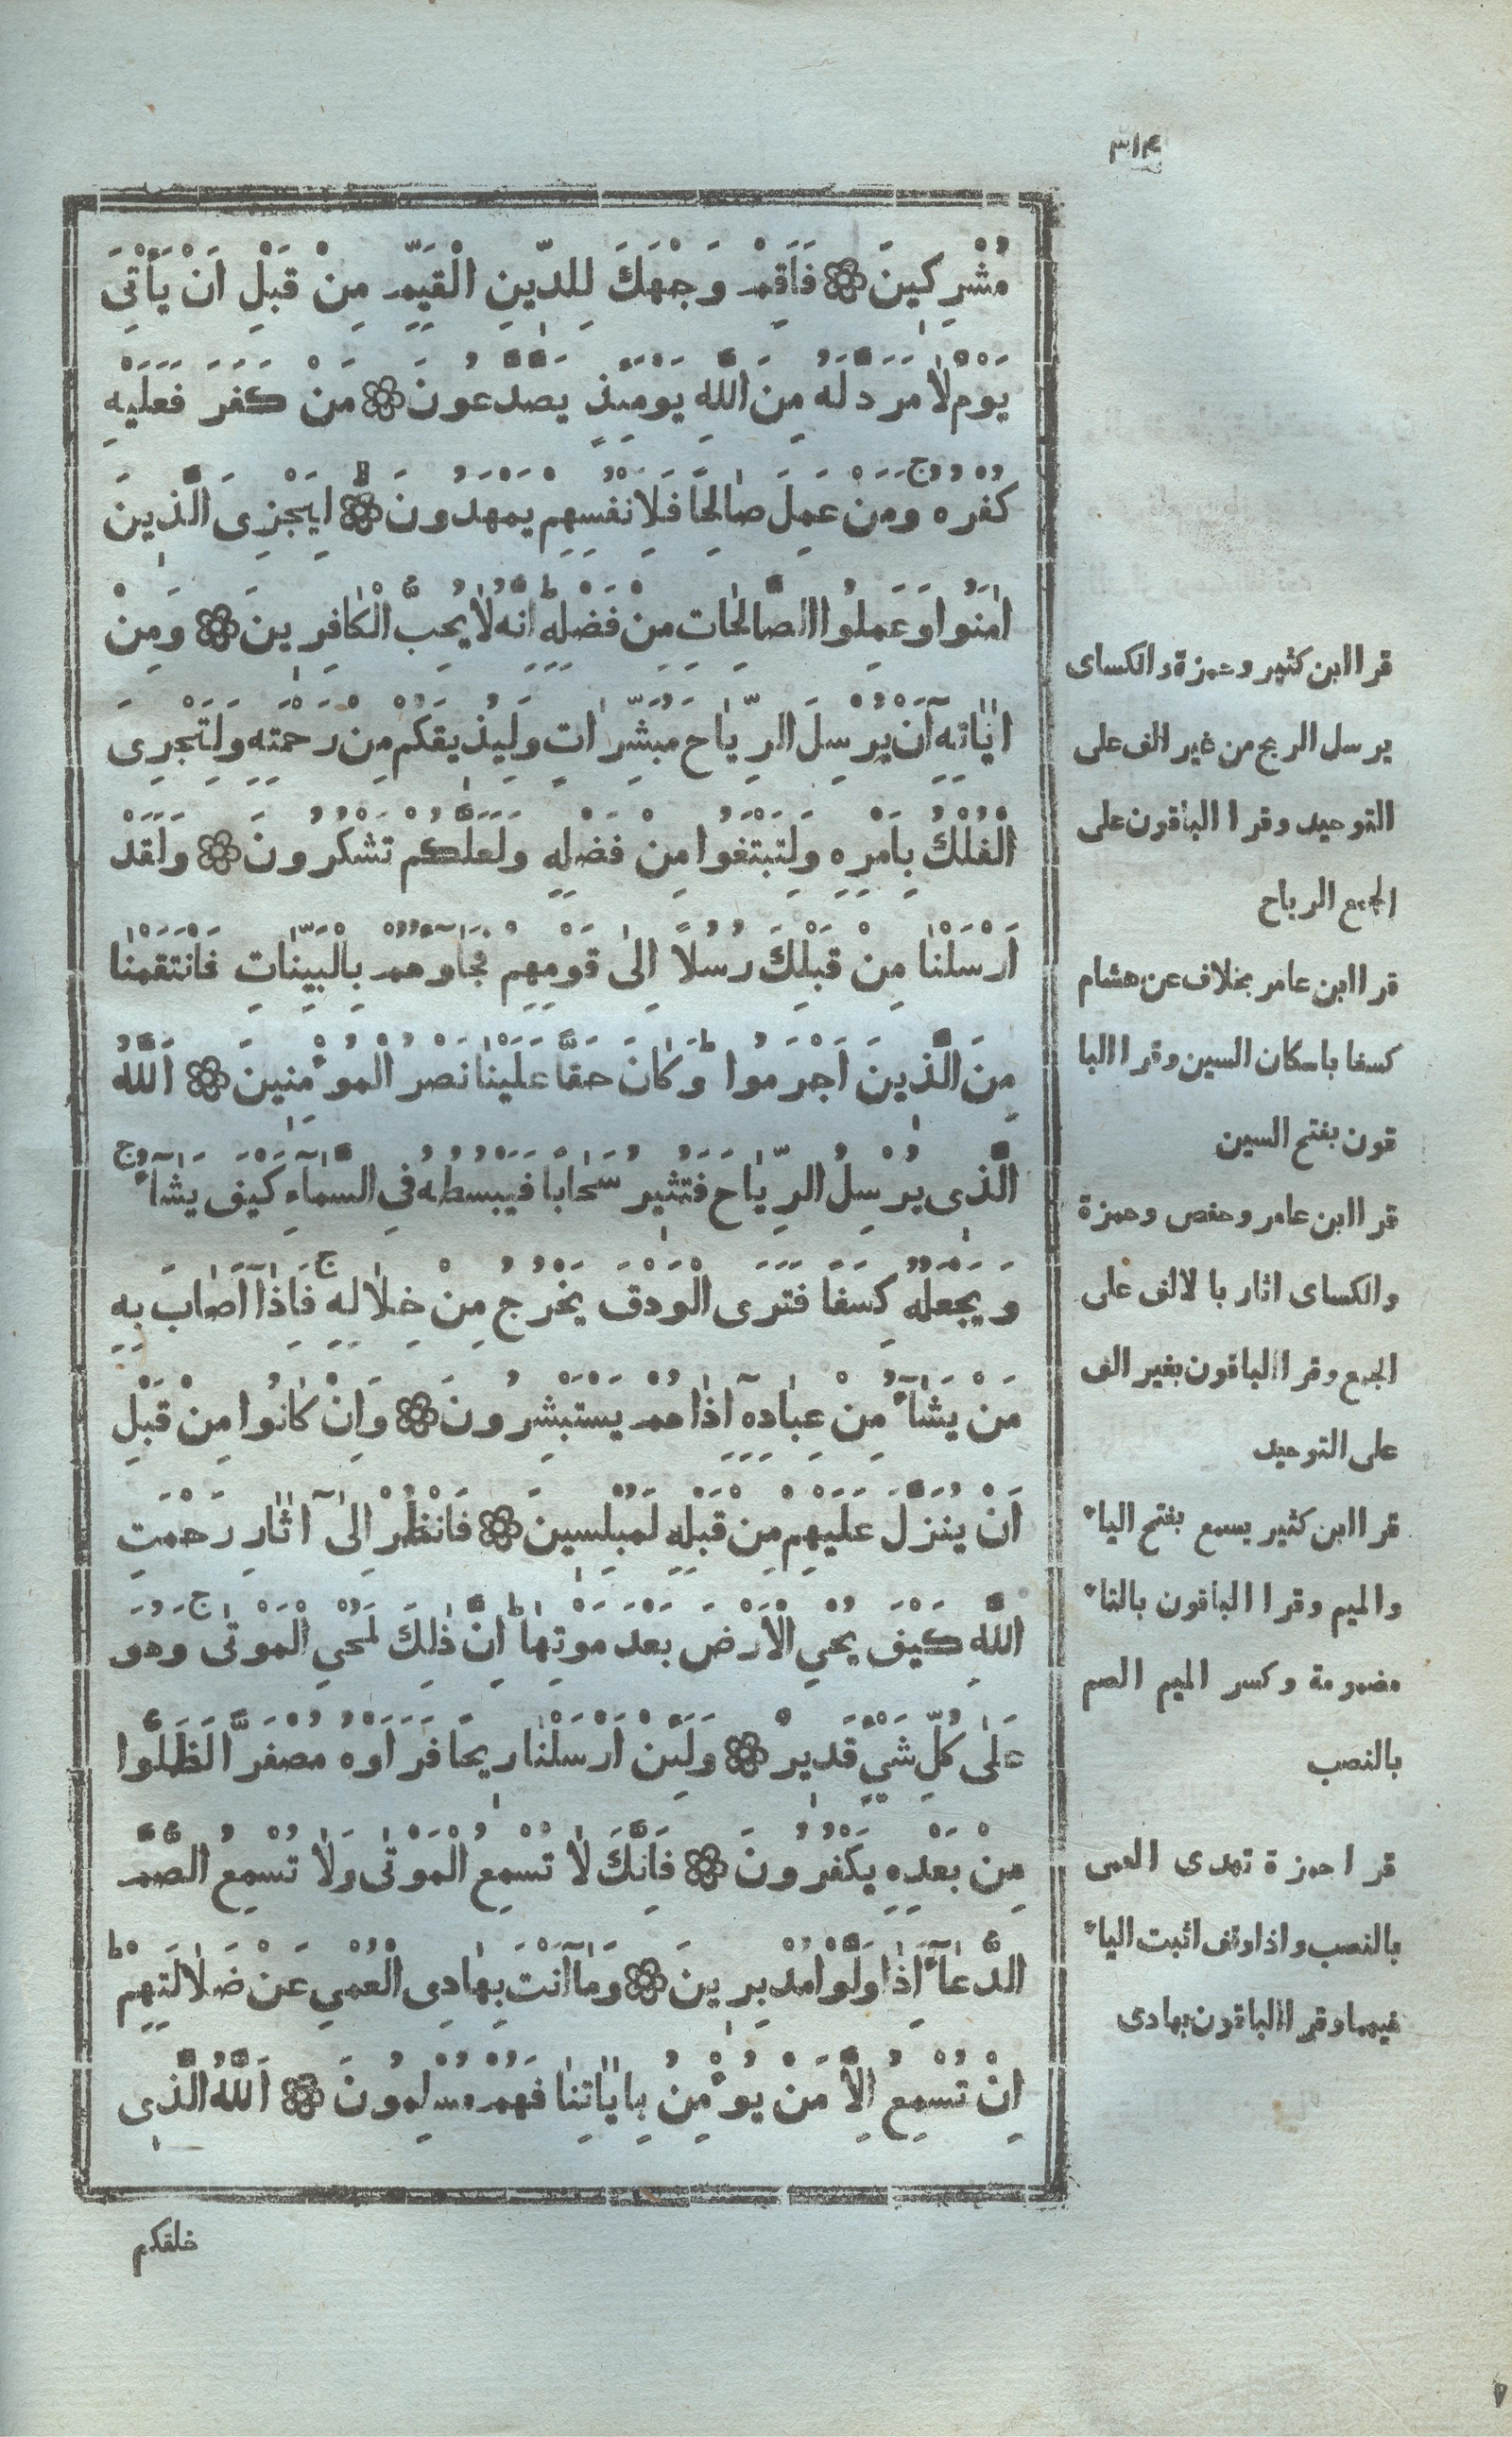 ٣١٤
مُشْرِكِينَ ۞ فَاَقِمْ وَجْهَكَ لِلدِّينِ الْقَيِّمِ مِنْ قَبْلِ اَنْ يَأْتِىَ
يَوْمٌ لَا مَرَدَّ لَهُ مِنَ اللَّهِ يَوْمَئِذٍ يَصَّدَّعُونَ ۞ مَنْ كَفَرَ فَعَلَيْهِ
كُفْرُهُ ج وَمَنْ عَمِلَ صَالِحًا فَلِاَنْفُسِهِمْ يَمْهَدُونَ ۞ لِيَجْزِىَ الَّذِينَ
اٰمَنُوا وَعَمِلُوا الصَّالِحَاتِ مِنْ فَضْلِهِ ط اِنَّهُ لَا يُحِبُّ الْكَافِرِينَ ۞ وَمِنْ
اٰيَاتِهِ اَنْ يُرْسِلَ الرِّيَاحَ مُبَشِّرَاتٍ وَلِيُذِيقَكُمْ مِنْ رَحْمَتِهِ وَلِتَجْرِىَ
الْفُلْكُ بِاَمْرِهِ وَلِتَبْتَغُوا مِنْ فَضْلِهِ وَلَعَلَّكُمْ تَشْكُرُونَ ۞ وَلَقَدْ
اَرْسَلْنَا مِنْ قَبْلِكَ رُسُلًا اِلٰى قَوْمِهِمْ فَجَآؤُهُمْ بِالْبَيِّنَاتِ فَانْتَقَمْنَا
مِنَ الَّذِينَ اَجْرَمُوا ط وَكَانَ حَقًّا عَلَيْنَا نَصْرُ الْمُؤْمِنِينَ ۞ اَللَّهُ
الَّذِى يُرْسِلُ الرِّيَاحَ فَتُثِيرُ سَحَابًا فَيَبْسُطُهُ فِى السَّمَآءِ كَيْفَ يَشَآءُ ج
وَيَجْعَلُهُ كِسَفًا فَتَرَى الْوَدْقَ يَخْرُجُ مِنْ خِلَالِهِ ج فَاِذَآ اَصَابَ بِهِ
مَنْ يَشَآءُ مِنْ عِبَادِهِ اِذَا هُمْ يَسْتَبْشِرُونَ ۞ وَاِنْ كَانُوا مِنْ قَبْلِ
اَنْ يُنَزَّلَ عَلَيْهِمْ مِنْ قَبْلِهِ لَمُبْلِسِينَ ۞ فَانْظُرْ اِلٰىٓ اٰثَارِ رَحْمَتِ
اللَّهِ كَيْفَ يُحْيِ الْاَرْضَ بَعْدَ مَوْتِهَا ط اِنَّ ذٰلِكَ لَمُحْيِ الْمَوْتٰى ج وَهُوَ
عَلٰى كُلِّ شَيْءٍ قَدِيرٌ ۞ وَلَئِنْ اَرْسَلْنَا رِيحًا فَرَاَوْهُ مُصْفَرًّا لَظَلُّوا
مِنْ بَعْدِهِ يَكْفُرُونَ ۞ فَاِنَّكَ لَا تُسْمِعُ الْمَوْتٰى وَلَا تُسْمِعُ الصُّمَّ
الدُّعَآءَ اِذَا وَلَّوْا مُدْبِرِينَ ۞ وَمَآ اَنْتَ بِهَادِى الْعُمْيِ عَنْ ضَلَالَتِهِمْ ط
اِنْ تُسْمِعُ اِلَّا مَنْ يُؤْمِنُ بِاٰيَاتِنَا فَهُمْ مُسْلِمُونَ ۞ اَللَّهُ الَّذِى
خلقكم
قرا ابن كثير وحمزة والكساى
يرسل الريح من غير الف على
التوحيد وقرا الباقون على
الجمع الرياح
قرا ابن عامر بخلاف عن هشام
كسفا باسكان السين وقرا البا
قون بفتح السين
قرا ابن عامر وحفص وحمزة
والكساى اثار با لالف على
الجمع وقرا الباقون بغير الف
على التوحيد
قرا ابن كثير يسمع بفتح الياء
والميم وقرا الباقون بالتاء
مضمومة وكسر الميم الصم
بالنصب
قرا حمزة تهدى العمى
بالنصب واذا وقف اثبت الياء
فيهما وقرا الباقون بهادى